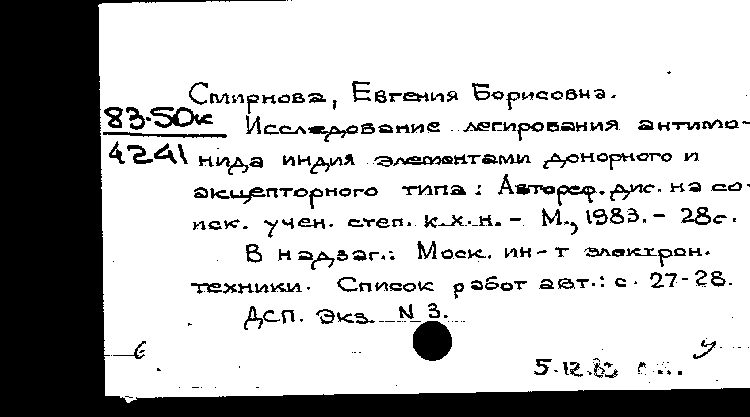 Смирнова, Евгения Борисовна.
83-50к
4241
Исследование легирования антимо-
нида индия элементами донорного и
акцепторного типа: Автореф. дис. на со-
иск. учен. степ. к.х.н. - М., 1983. - 28с.
В надзаг.: Моск. ин-т электрон.
техники. Список работ авт.: с. 27-28.
ДСП. Экз. N 3.
б
у
5.12.83